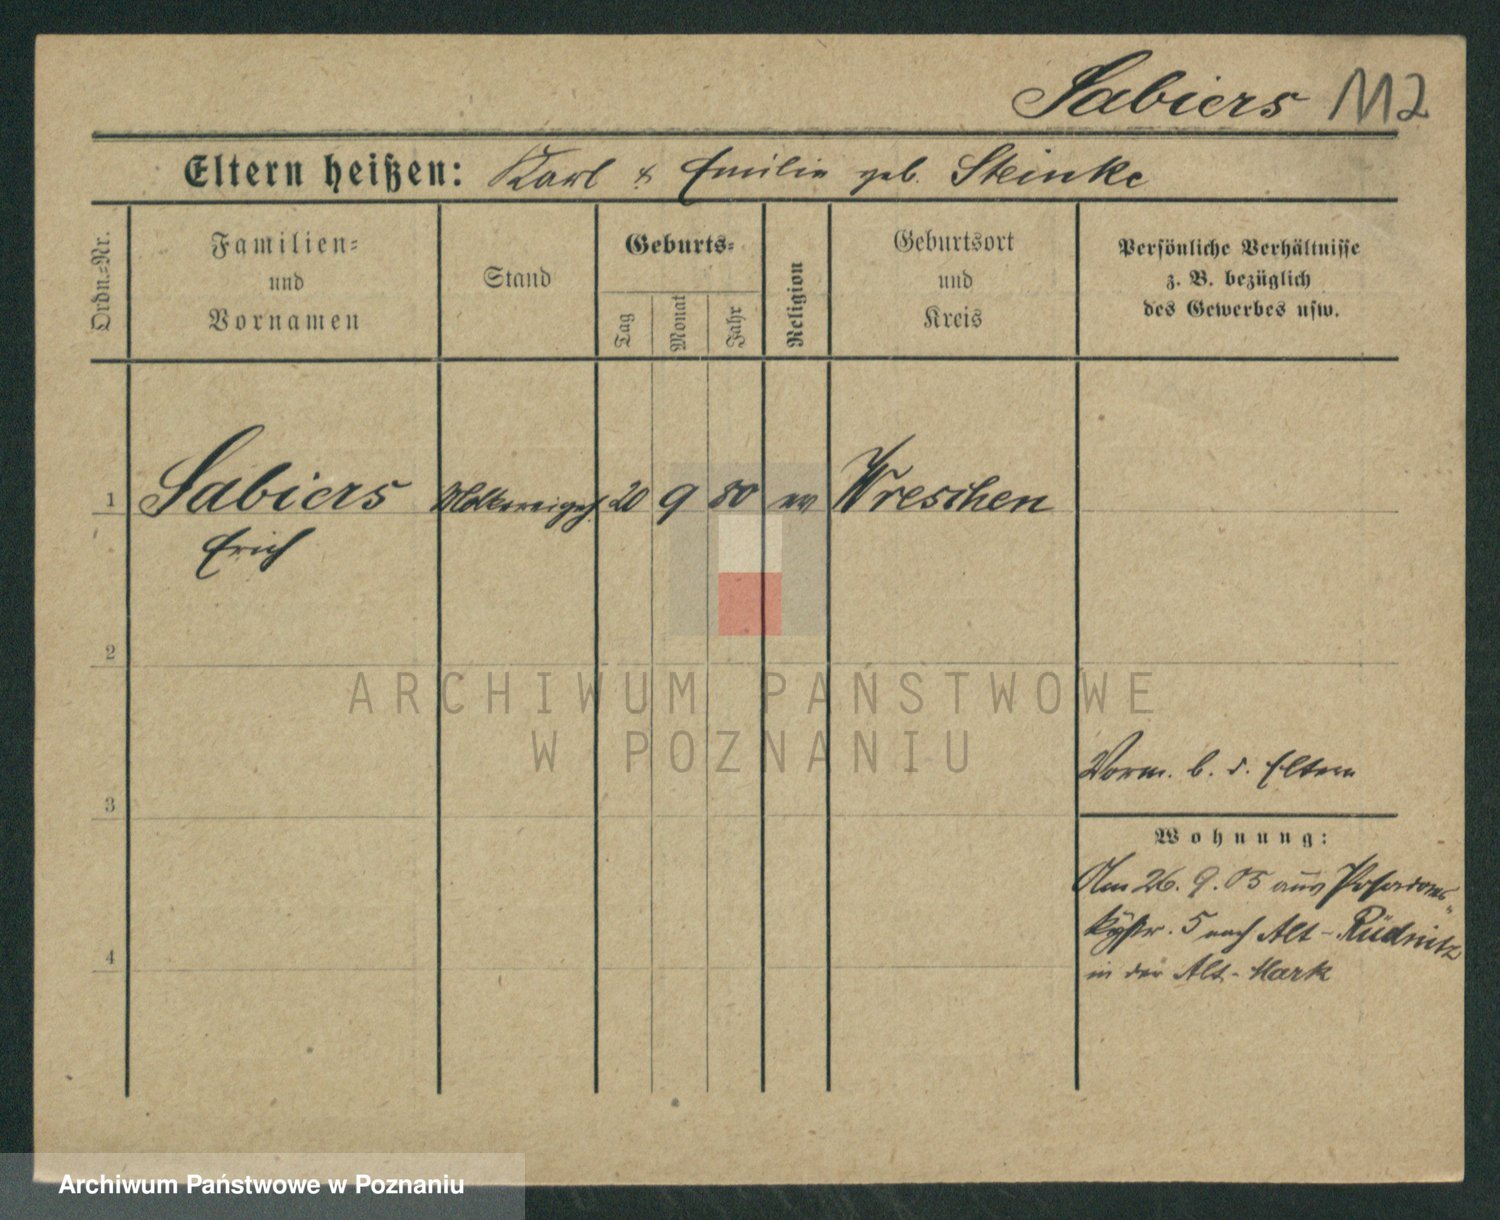 Sabiers 112
Eltern heißen: Karl & Emilie geb. Steinke
Ordn.=Nr.
Familien=
und
Vornamen
Stand
Geburts=
Tag
Monat
Jahr
Religion
Geburtsort
und
Kreis
Persönliche Verhältnisse
z. B. bezüglich
des Gewerbes usw.
1 Sabiers Molkereigeh. 20 9 80 ev Wreschen
Erich
2
ARCHIWUM PAŃSTWOWE
W POZNANIU
Vorm. b. d. Eltern
3
Wohnung:
Am 26. 9. 05 aus
str. 5 nach Alt-Rüdnitz
4
in der Alt-Mark
Archiwum Państwowe w Poznaniu